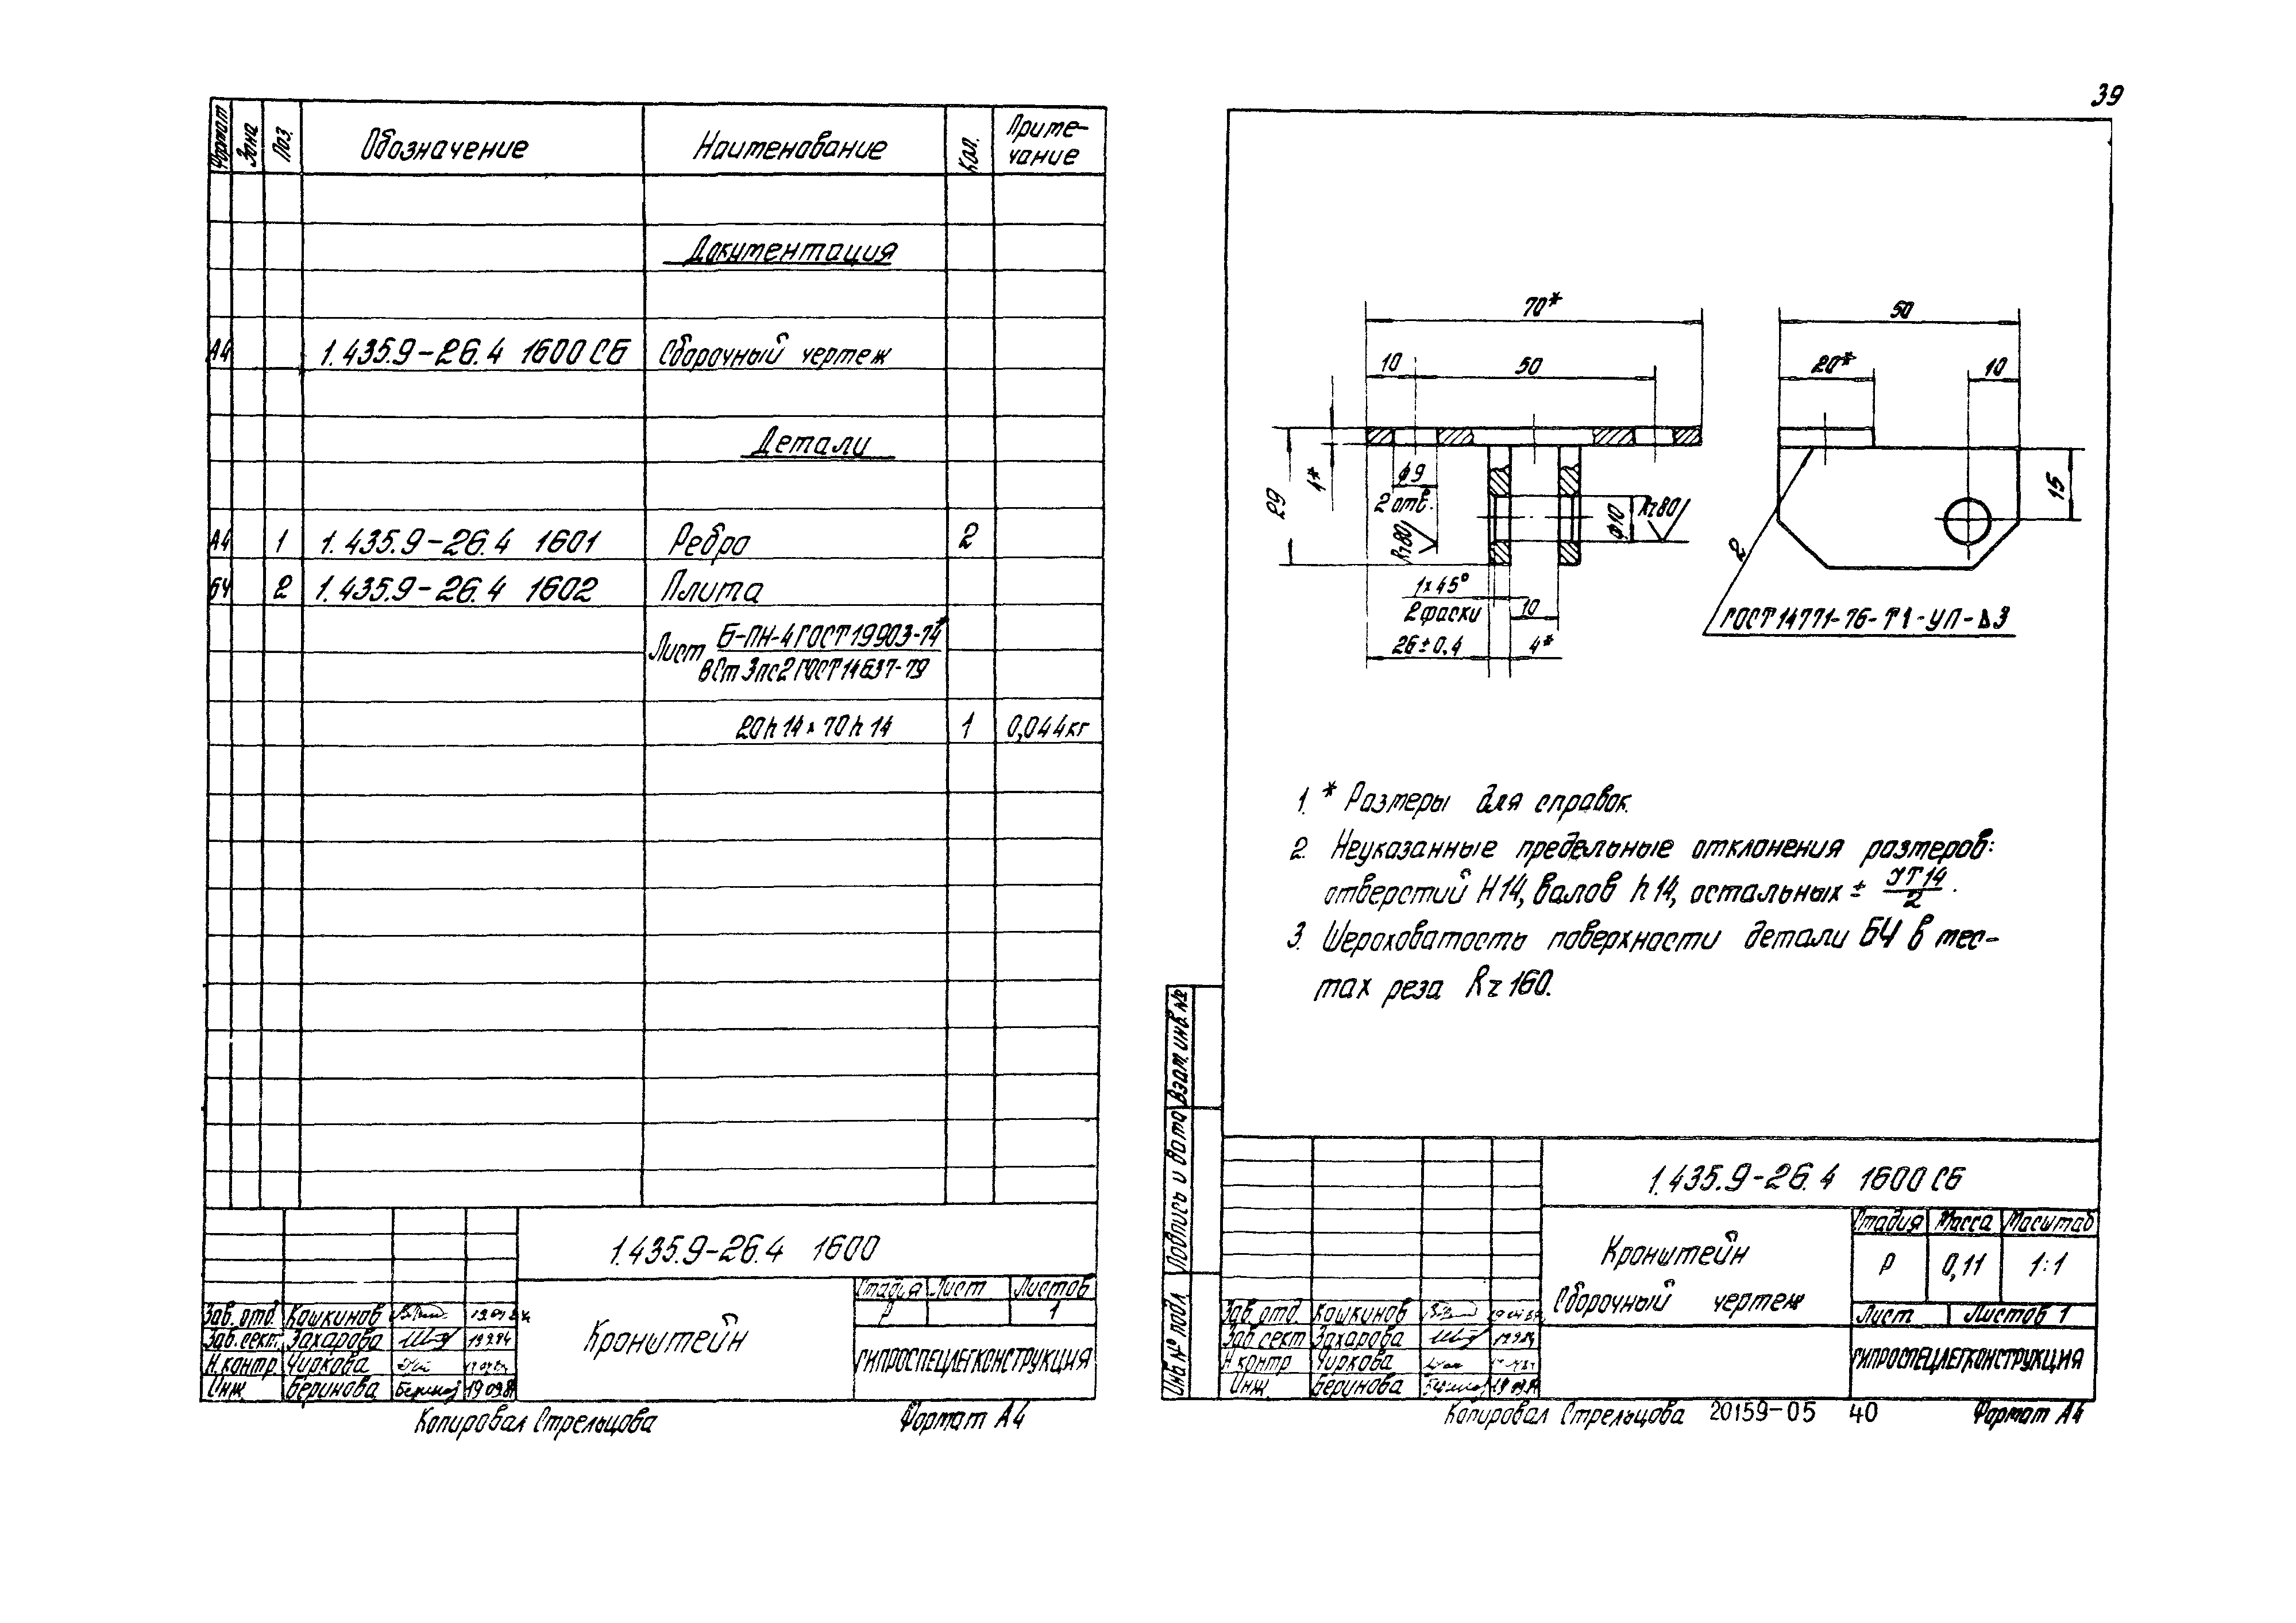 39
Формат Зона Поз. Обозначение Наименование Кол. Приме-
чание
Документация
А4 1.435.9-26.4 1600 СБ Сборочный чертеж
Детали
А4 1 1.435.9-26.4 1601 Ребро 2
БЧ 2 1.435.9-26.4 1602 Плита
Лист Б-ПН-4 ГОСТ 19903-74*
ВСт 3пс2 ГОСТ 14637-79
20h14x70h14 1 0,044кг
1.435.9-26.4 1600
Кронштейн
Стадия Лист Листов
Р 1
ГИПРОСПЕЦЛЕГКОНСТРУКЦИЯ
Зав. отд. Кашкинов
Зав. сект. Захарова
Н.контр. Чиркова
Инж. Беринова
Копировал Стрельцова Формат А4
70*
10 50
50
20* 10
29
4*
ϕ9
2 отв.
Rz80
ϕ10
Rz80
1x45°
2 фаски
10
26±0,4
4*
15
2
ГОСТ 14771-76-Т1-УП-Δ3
1. * Размеры для справок.
2. Неуказанные предельные отклонения размеров:
отверстий H14, валов h14, остальных ± IT14/2.
3. Шероховатость поверхности детали БЧ в мес-
тах реза Rz160.
Взам. инв. №
Подпись и дата
Инв. № подл.
1.435.9-26.4 1600 СБ
Кронштейн
Сборочный чертеж
Стадия Масса Масштаб
Р 0,11 1:1
Лист Листов 1
ГИПРОСПЕЦЛЕГКОНСТРУКЦИЯ
Зав. отд. Кашкинов
Зав. сект Захарова
Н контр Чиркова
Инж. Беринова
Копировал Стрельцова 20159-05 40 Формат А4